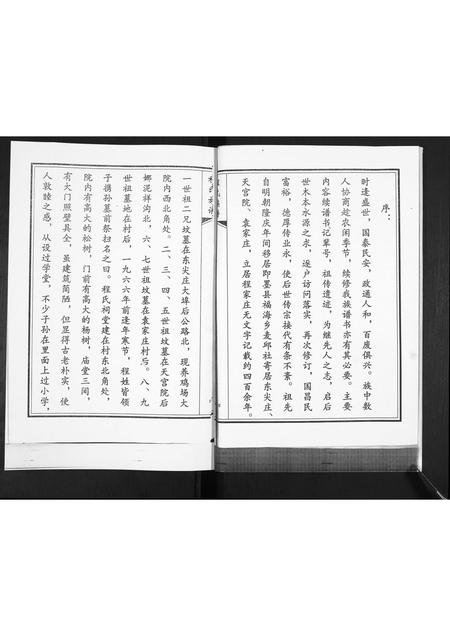 序：
时逢盛世，国泰民安，政通人和，百废俱兴。族中数
人协商趁农闲季节，续修我族谱书亦有其必要。主要
内容续谱书记辈号，祖传遗迹，为继先人之志，启后
世木本水源之求，逐户访问落实，再次修订，国昌民
富裕，德厚传业永，使后世传宗接代有条不紊。祖先
自明朝隆庆年间移居即墨县福海乡麦邱社寄居东尖庄、
天宫院、袁家庄，立居程家庄无文字记载约四百余年。
一世祖二兄坟墓在东尖庄大埠后公路北，现养鸡场大
院内西北角处。二、三、四、五世祖坟墓在天宫院后
娜泥祥沟北，六、七世祖坟墓在袁家庄村后。八、九
世祖墓地在村后，一九六六年前逢年寒节，程姓皆领
子携孙墓前祭扫名之曰。程氏祠堂建在村东北角处，
院内有高大的松树，门前有高大的杨树，庙堂三间，
有大门照壁具全，虽建筑简陋，但显得古老朴实，使
人敦睦之感，从设过学堂，不少子孙在里面上过小学，